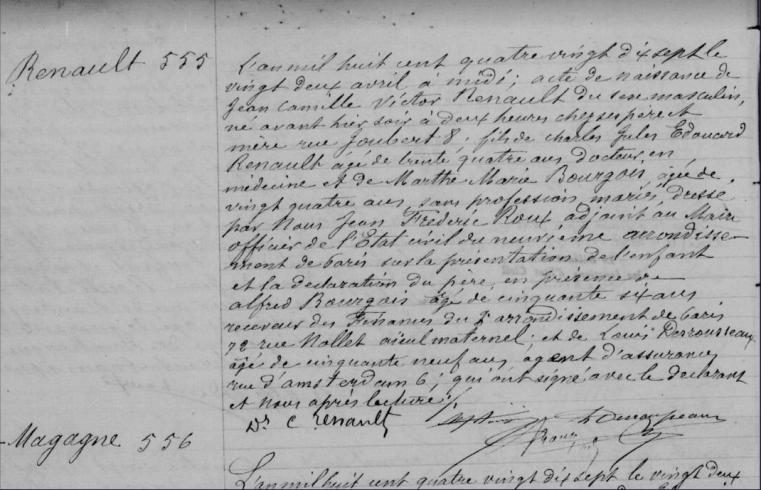 Renault 555
L'an mil huit cent quatre vingt dix sept le
vingt deux avril à midi; acte de naissance de
Jean Camille Victor Renault du sexe masculin,
né avant hier soir à deux heures chez ses père et
mère rue Joubert 8. fils de Charles Jules Edouard
Renault âgé de trente quatre ans Docteur en
médecine et de Marthe Marie Bourgois, âgée de
vingt quatre ans, sans profession, mariés, dressé
par Nous Jean Frédéric Roux adjoint au Maire
officier de l'Etat civil du neuvième arrondisse-
ment de Paris sur la présentation de l'enfant
et la déclaration du père, en présence de
Alfred Bourgois âgé de cinquante six ans
receveur des Finances du arrondissement de Paris
72 rue Nollet aïeul maternel; et de Louis Derrousseau
âgé de cinquante neuf ans agent d'assurances
rue d'amsterdam 6; qui ont signé avec le déclarant
et Nous après lecture /.
Dr C Renault
Roux
Magagne 556
L'an mil huit cent quatre vingt dix sept le vingt deux